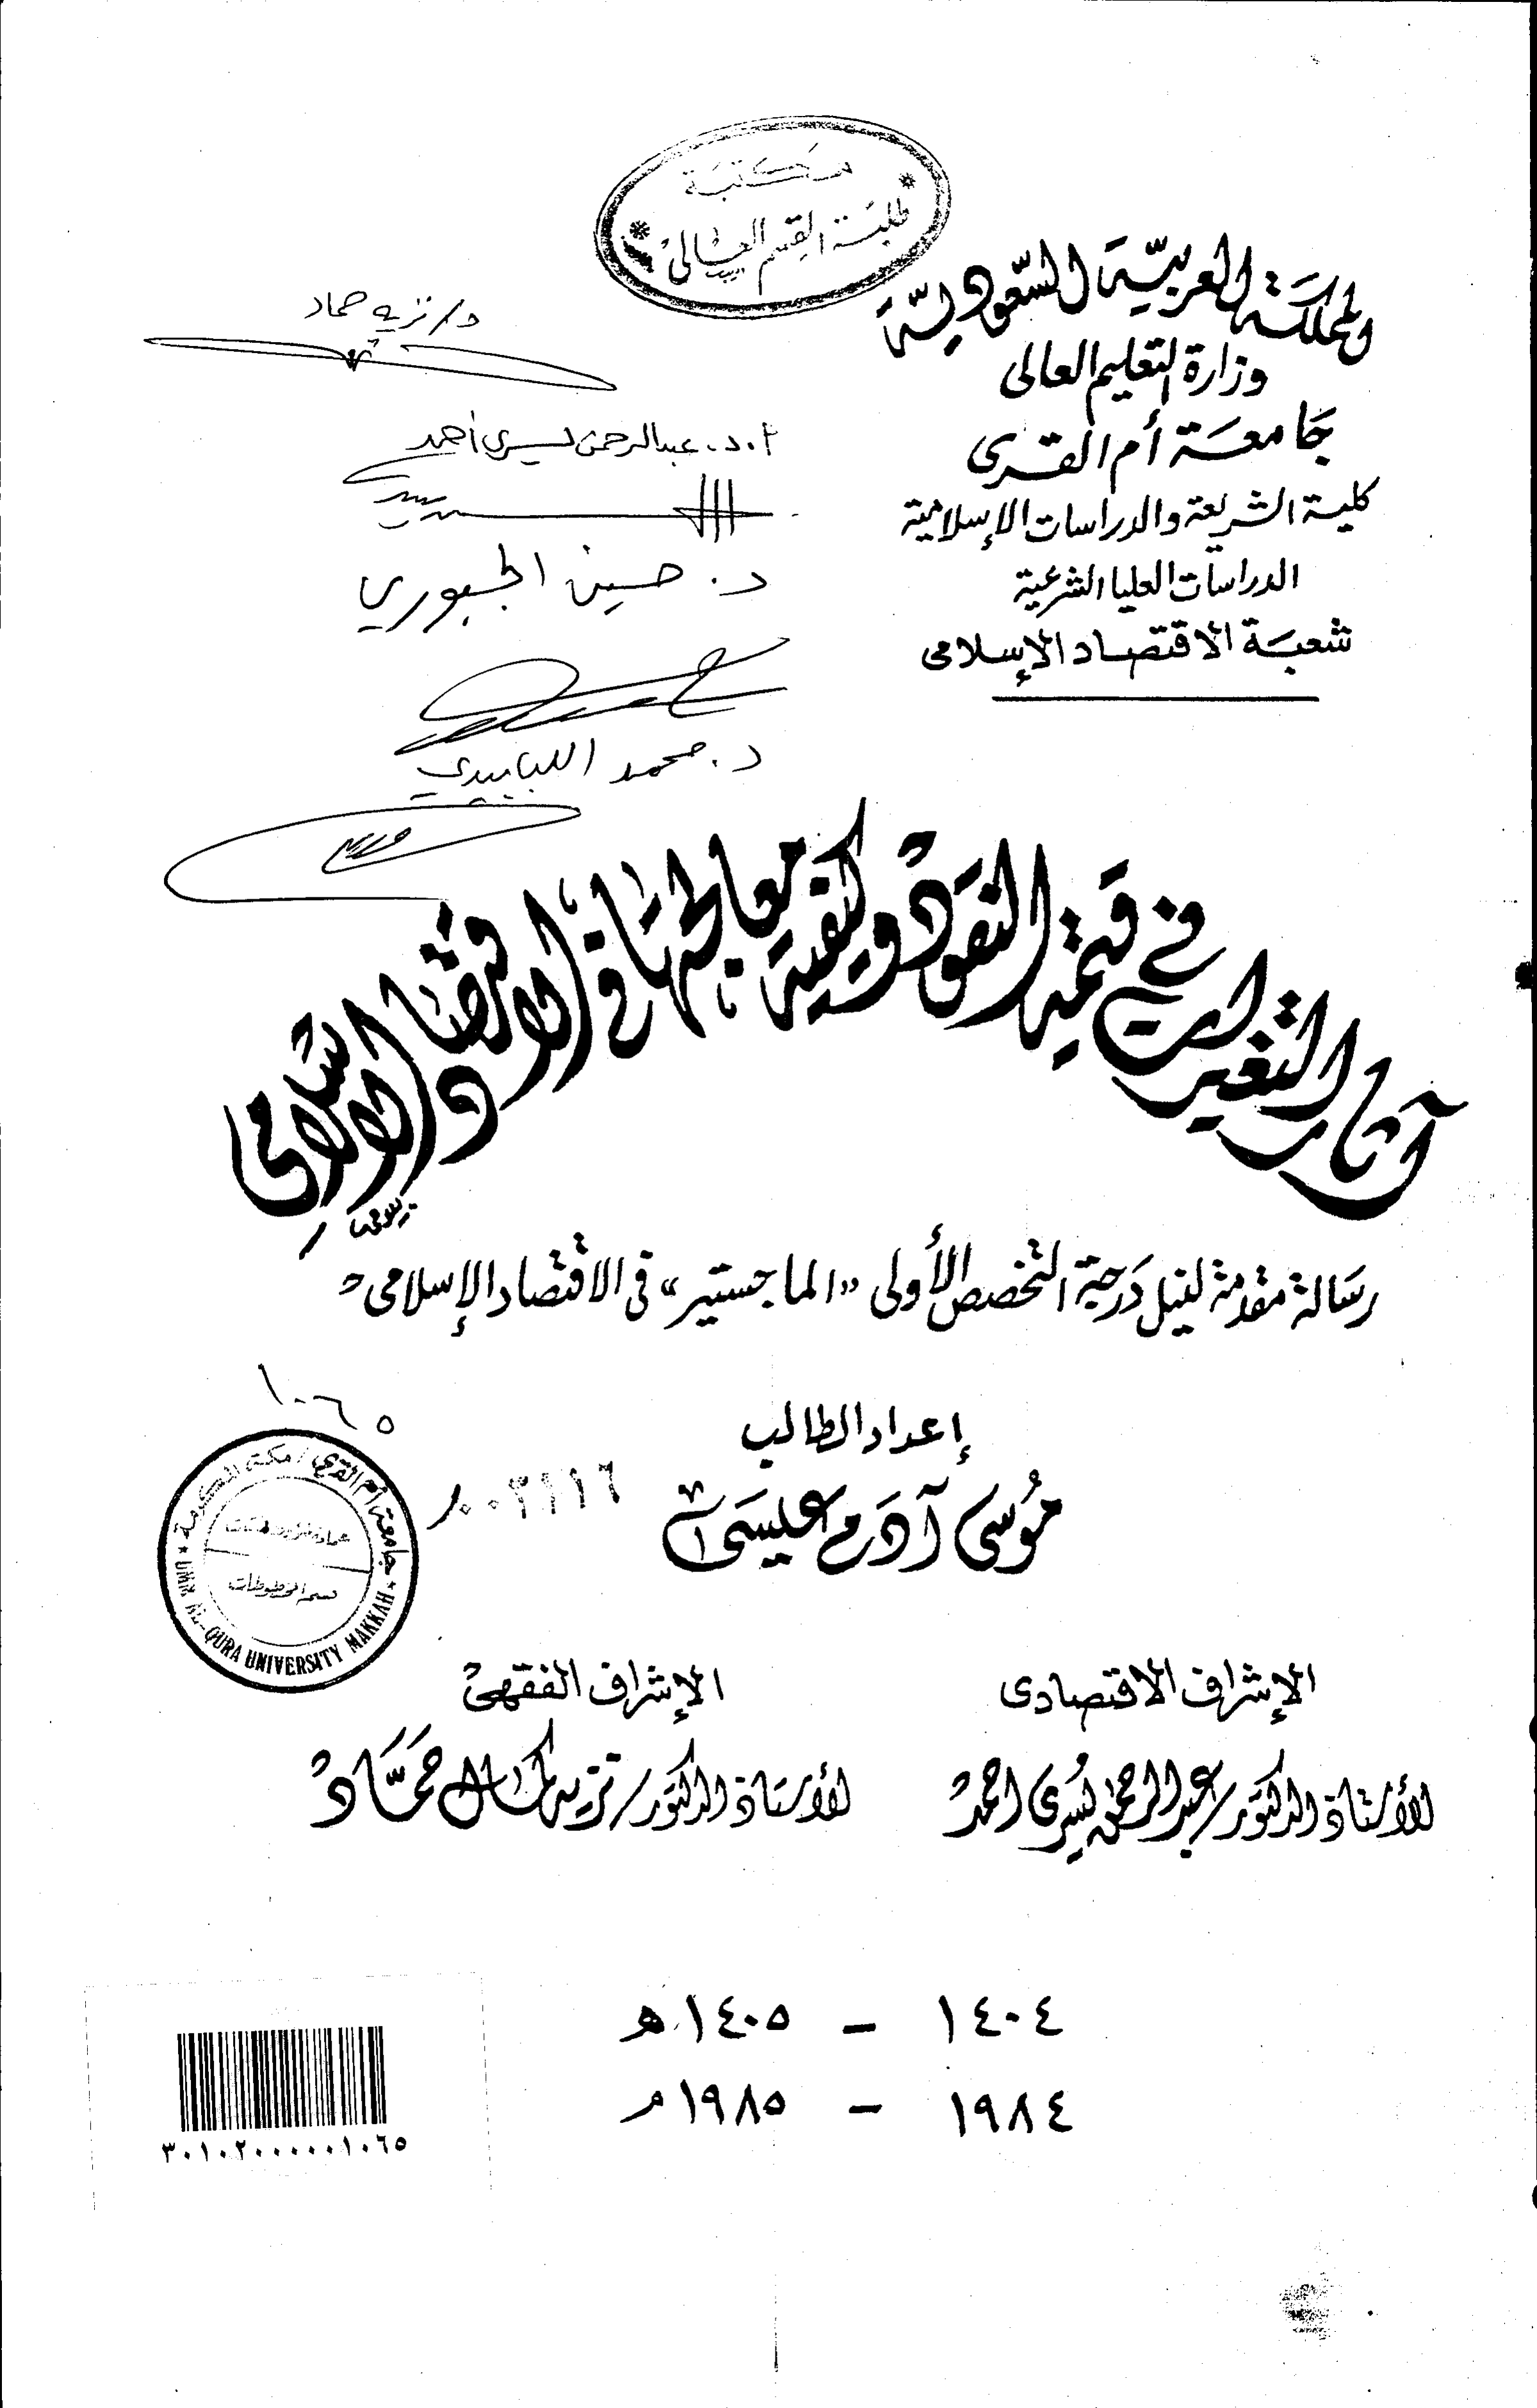 مكتبة
طلبة القسم العالي
المملكة العربية السعودية
وزارة التعليم العالى
جامعة أم القرى
كلية الشريعة والدراسات الإسلامية
الدراسات العليا الشرعية
شعبة الاقتصاد الإسلامى
د/ نزيه حماد
أ.د. عبدالرحمن يسري أحمد
د. حسين الجبوري
د. محمد اللبابيدي
آثار التغيرات في قيمة النقود وكيفية معالجتها في الاقتصاد الإسلامي
رسالة مقدمة لنيل درجة التخصص الأولى "الماجستير" فى الاقتصاد الإسلامى
١٠٦٥
إعداد الطالب
موسى آدم عيسى
جامعة أم القرى / مكة المكرمة
قسم المخطوطات
UMM AL-QURA UNIVERSITY MAKKAH
الإشراف الاقتصادى
الأستاذ الدكتور/ عبدالرحمن يسرى احمد
الإشراف الفقهى
الأستاذ الدكتور/ نزيه كمال حماد
١٤٠٤ – ١٤٠٥ هـ
١٩٨٤ – ١٩٨٥ م
٣٠١٠٢٠٠٠٠٠١٠٦٥